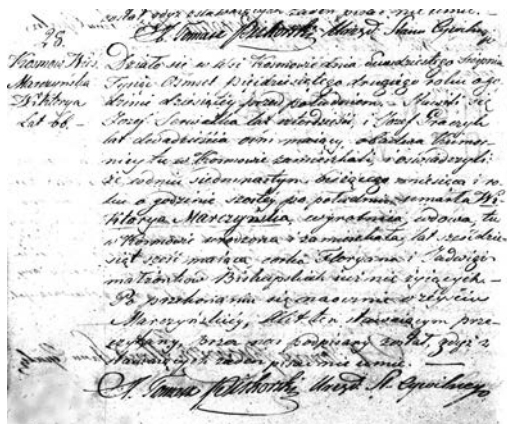 X. Tomasz Piechowski Urzęd. Stanu Cywilnego
28.
Kromów Wieś
Marczyńska
Wiktorya
Lat 66. —
Działo się w Wsi Kromowie dnia dwudziestego Sierpnia
Tysiąc Ośmset Pięćdziesiątego drugiego roku o go-
dzinie dziesiątej przed południem. — Stawili się
Józef lat czterdzieści i Józef
lat dwadzieścia ośm mający, obadwa Komor-
nicy tu w Kromowie zamieszkali, i oświadczyli:
że w dniu siedmnastym bieżącego miesiąca i ro-
ku o godzinie szóstej po południu umarła Wi-
ktorya Marczyńska, wyrobnica wdowa, tu
w Kromowie urodzona i zamieszkała, lat sześćdzie-
siąt sześć mająca, córka Floryana i Jadwigi
małżonków Biskupskich już nie żyjących. —
Po przekonaniu się naocznie o zejściu
Marczyńskiej, Akt ten stawającym prze-
czytany, przez nas podpisany został, gdyż z
stawających żaden pisać nie umie. —
X. Tomasz Piechowski Urzęd. St. Cywilnego